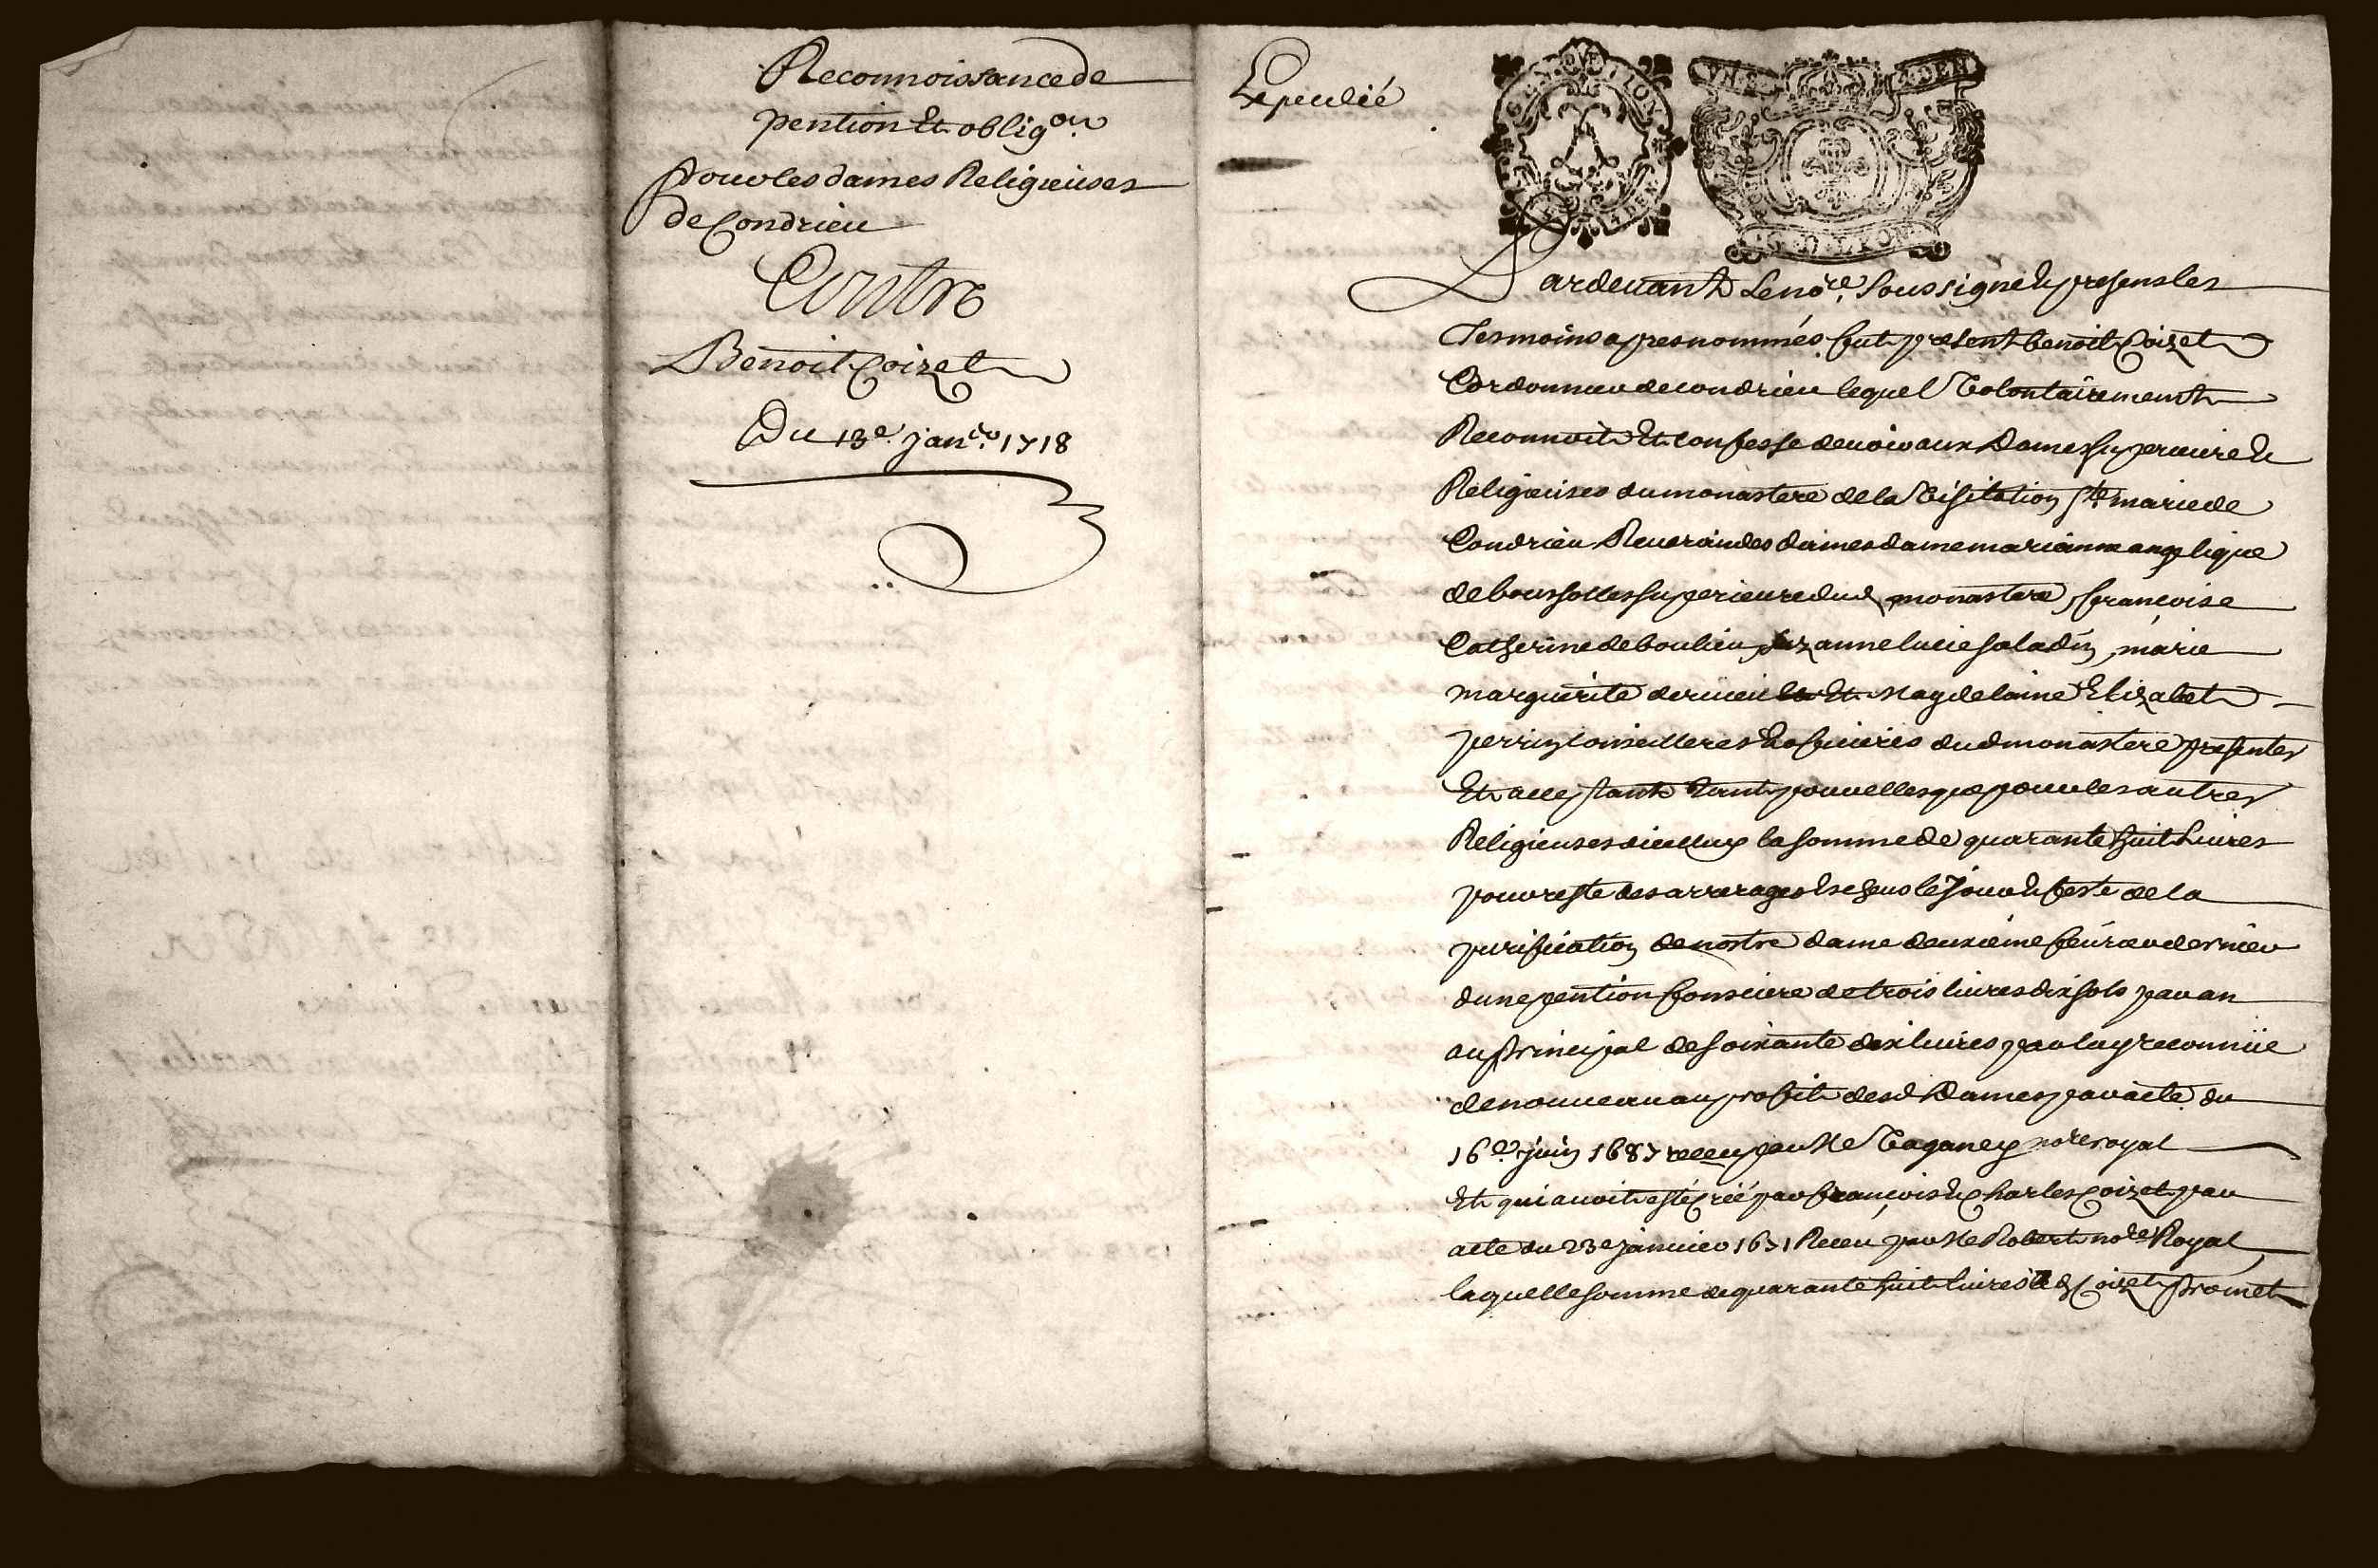 Reconnoissance de
pention Et oblig.on
pour les dames Religieuses
de Condrieu
Contre
Benoit Coizet
Du 13e. janer. 1718
Expedié
GEN. DE LION
GEN. D. LION
Pardeuant Le nore. soussigné & presens les
tesmoins apres nommés fut present benoit Coizet
Cordonnier de condrieu lequel volontairement
Reconnoit Et confesse deuoir aux Dames superieure &
Religieuses du monastere de la visitation ste marie de
Condrieu Reuerandes dames dame marianne angelique
de boussolles superieure dud monastere, françoise
Catherine de boulieu, suzanne lucie saladin, marie
marguerite derüeil Et Magdelaine Elizabet
perrin conseilleres & officieres dud monastere presentes
Et acceptants tant pour elles que pour les autres
Religieuses dicelluy la somme de quarante huit liures
pour reste des arrerages escheus le jour & feste de la
purification de nostre dame deuxieme feurier dernier
dune pention fonsiere de trois liures dix sols par an
au principal de soixante dix liures par luy reconnüe
de nouueau au profit desd Dames par acte du
16e. juin 1687 receu par Me Caganey nore royal
Et qui auoit esté crée par françois & Charles Coizet par
acte du 23e januier 1631 Receu par Me Robert nore Royal
laquelle somme de quarante huit liures led Coizet promet